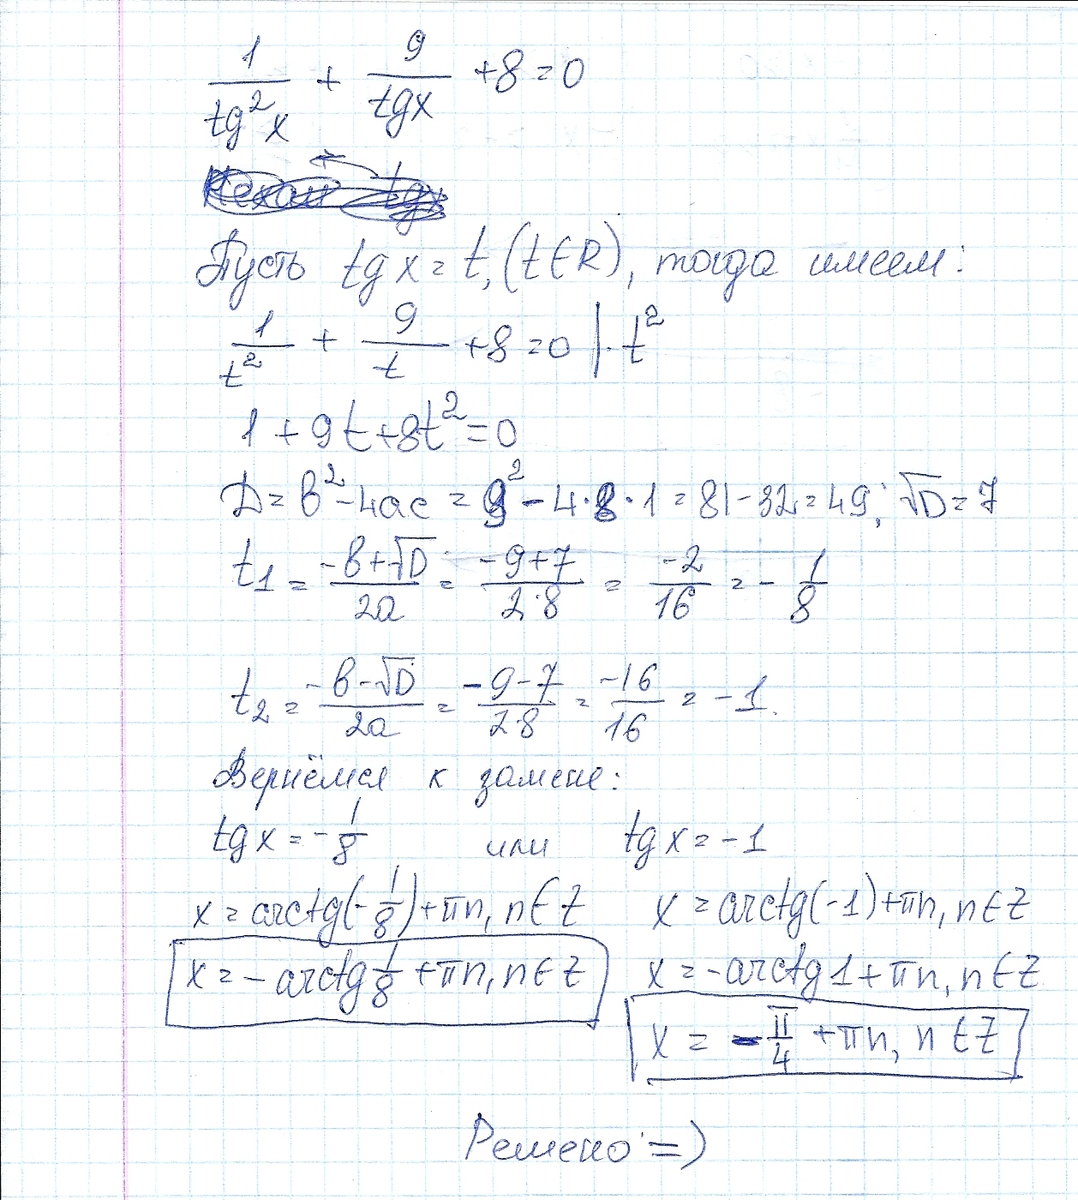 1/tg²x + 9/tgx + 8 = 0
Пусть tg x = t, (t ∈ R), тогда имеем:
1/t² + 9/t + 8 = 0 | · t²
1 + 9t + 8t² = 0
D = b² - 4ac = 9² - 4·8·1 = 81 - 32 = 49; √D = 7
t₁ = (-b + √D)/2a = (-9+7)/2·8 = -2/16 = -1/8
t₂ = (-b - √D)/2a = (-9-7)/2·8 = -16/16 = -1.
Вернёмся к замене:
tg x = -1/8 или tg x = -1
x = arctg(-1/8) + πn, n ∈ Z x = arctg(-1) + πn, n ∈ Z
x = -arctg 1/8 + πn, n ∈ Z x = -arctg 1 + πn, n ∈ Z
x = -π/4 + πn, n ∈ Z
Решено =)